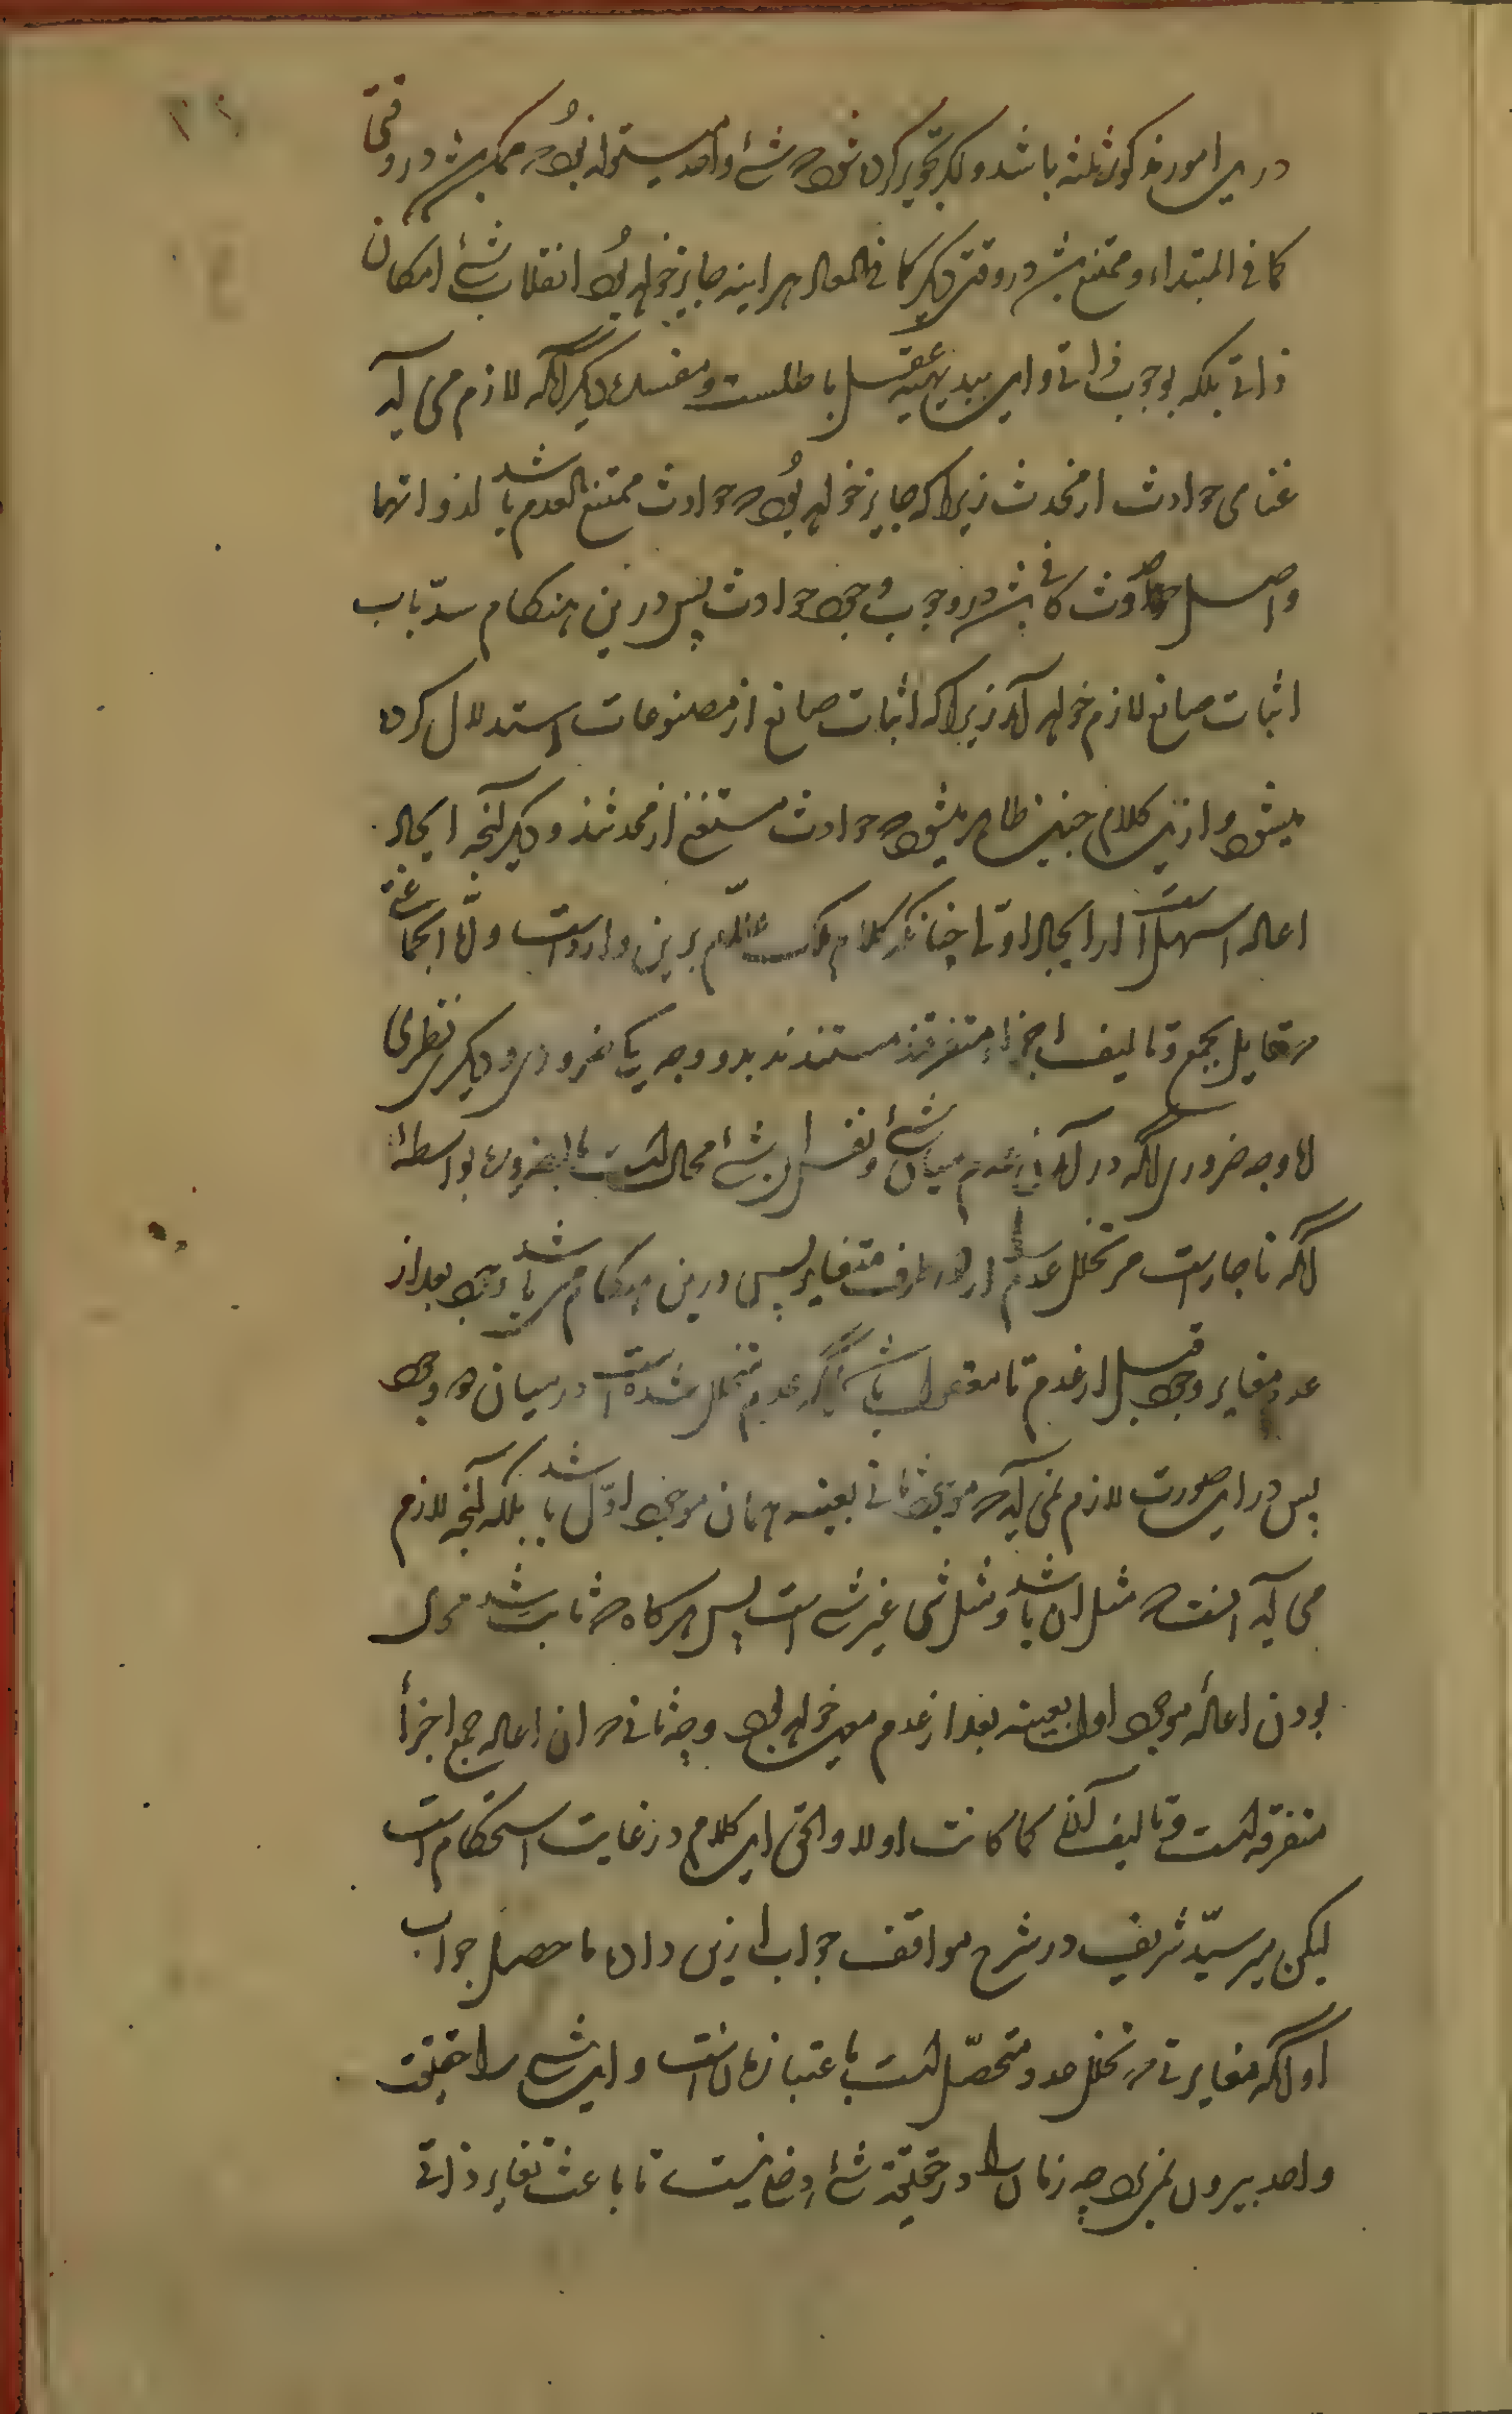 درین امور مذکوره ثلثه باشد و دیگر تجویز کرده شود که شئ واحد میتواند بود که ممکن باشد در وقتی
کما فی المبتداء و ممتنع باشد در وقتی دیگر کما فی المعاد هر اینه جایز خواهد بود انقلاب شئ امکان
ذاتی بلکه بوجوب ذاتی و این ببدیهیه عقل باطلست و مفسده دیگر آنکه لازم می آید
غنای حوادث از محدث زیرا که جایز خواهد بود که حوادث ممتنع العدم باشد لذواتها
و اصل حدوث کافی باشد در وجوب وجود حوادث پس درین هنکام سدّ باب
اثبات صانع لازم خواهد آمد زیرا که اثبات صانع از مصنوعات استدلال کرده
میشود و ازین کلام چنین ظاهر میشود که حوادث مستغنی از محدثند و دیگر آنچه ایجاد
اعاده اسهل است از ایجاد اوّل چنانکه کلام ملک علّام برین وارد است و امّا جماعتی
که قایل بجمع و تالیف اجزاء متفرقند مستندند بدو وجه یکی ضروری و دیگر نظری
امّا وجه ضروری آنکه در آمدن عدم میان شئ و نفس این شئ محال است بالضروره بواسطهٔ
آنکه ناچار است مر تخلل عدم را از دو طرف متغایر پس درین هنکام می باشد وجود بعد از
عدم مغایر وجود قبل از عدم تا معقول باشد آنکه عدم متخلل شده است در میان دو وجود
پس در این صورت لازم نمی آید که موجود ثانی بعینه همان موجود اوّل باشد بلکه آنچه لازم
می آید آنست که مثل ان باشد و مثل شی غیر شی است پس هرکاه که ثابت شد محال
بودن اعادهٔ موجود اول بعینه بعد از عدم معین خواهد بود وجه ثانی که ان اعاده جمع اجزأ
متفرقه است و تالیف آنها کما کانت اولا و الحق این کلام در غایت استحکام است
لیکن میر سیّد شریف در شرح مواقف جواب ازین داده ما حصل جواب
او آنکه مغایرتی که تخلل عدم متحصّل است باعتبار زمان است و این شی را حقیقت
واحد بیرون نمی برد چه زمان را در حقیقة شئ دخلی نیست تا باعث تغایر ذاتی